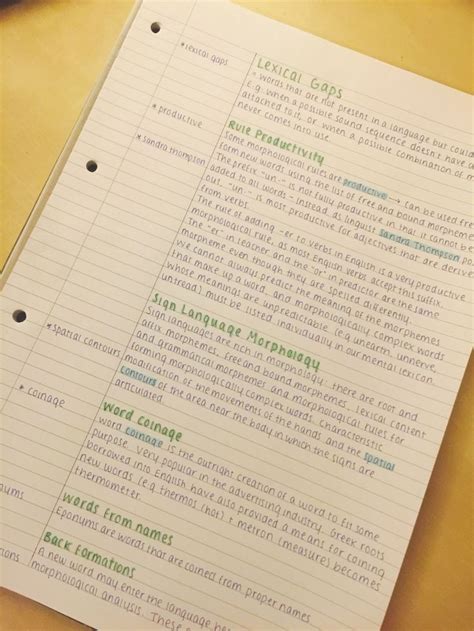 Lexical Gaps
*lexical gaps
* words that are not present in a language but could
e.g. when a possible sound sequence doesn't have a
attached to it, or when a possible combination of m
never comes into use.
Rule Productivity
*productive
some morphological rules are productive → can be used free
form new words using the list of free and bound morpheme
*sandra thompson
The prefix "un-" is not fully productive in that it cannot be
added to all words - instead, as linguist Sandra Thompson po
out, "un-" is most productive for adjectives that are derive
from verbs.
The rule of adding -er to verbs in English is a very productive
morphological rule, as most English verbs accept this suffix.
The "er" in teacher and the "or" in predictor are the same
morpheme even though they are spelled differently.
We cannot always predict the meaning of the morphemes
that make up a word, and morphologically complex words
whose meanings are unpredictable (e.g unearth, unnerve,
untread) must be listed individually in our mental lexicon.
Sign Language Morphology
Sign languages are rich in morphology: there are root and
affix morphemes, free and bound morphemes, lexical content
and grammatical morphemes and morphological rules for
forming morphologically complex words. Characteristic
*spatial contours
modification of the movements of the hands and the spatial
contours of the area near the body in which the signs are
articulated.
Word Coinage
* coinage
word coinage is the outright creation of a word to fit some
purpose. Very popular in the advertising industry. Greek roots
borrowed into English have also provided a means for coining
new words (e.g thermos (hot) + metron (measure) becomes
thermometer.
Words from names
Eponums are words that are coined from proper names
nyms
Back Formations
A new word may enter the language be
morphological analysis. These